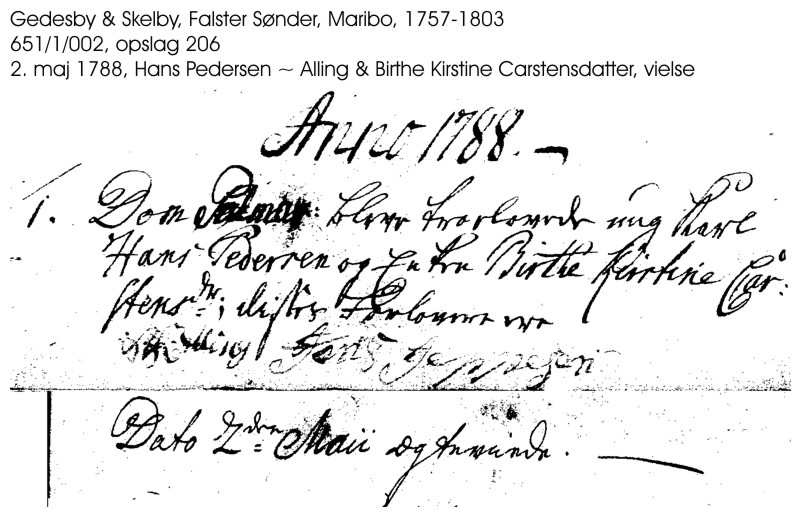 Gedesby & Skelby, Falster Sønder, Maribo, 1757-1803
651/1/002, opslag 206
2. maj 1788, Hans Pedersen ~ Alling & Birthe Kirstine Carstensdatter, vielse
Anno 1788. –
1. Dom Palmar: bleve troelovede ung Karl
Hans Pedersen og Enken Birthe Kirstine Car:
stens dr; disses Forlovere ere
Jens Jeppesen
Dato 2den Maii ægteviede. —